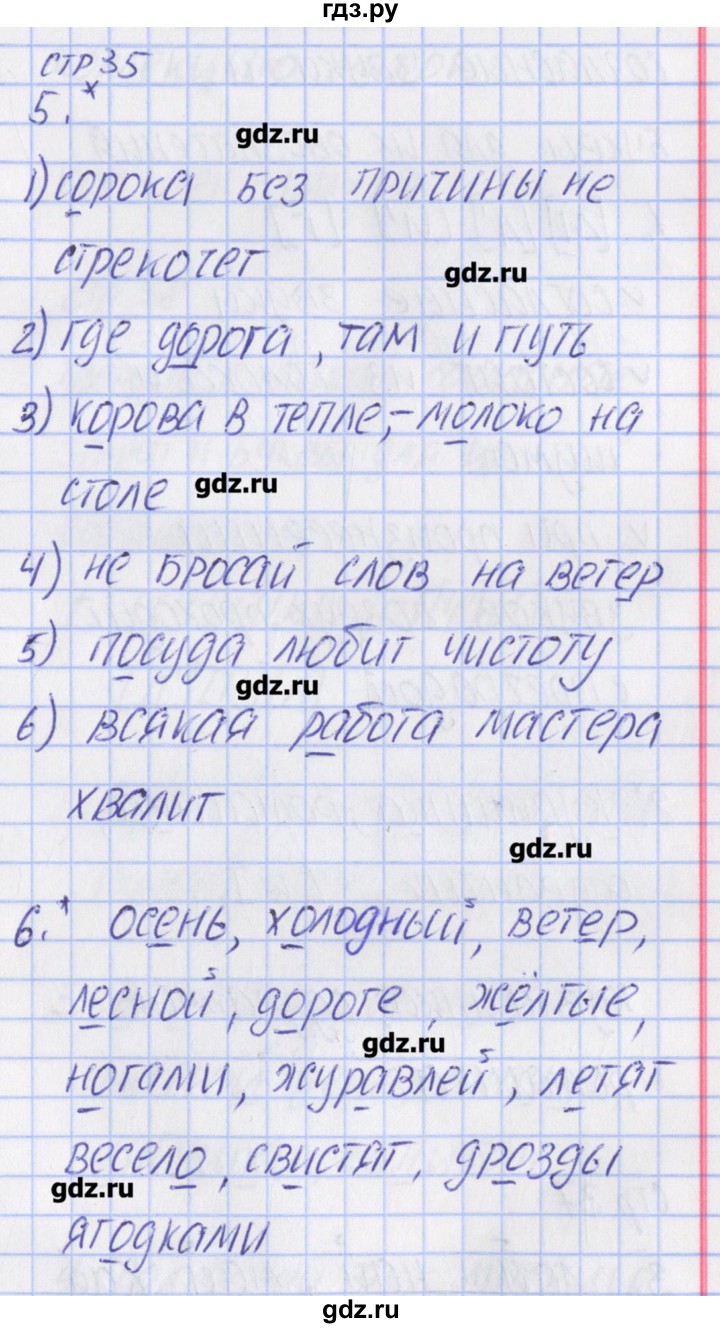 гдз.ру
стр 35
5.*
gdz.ru
1) сорока без причины не
стрекочет
gdz.ru
2) где дорога, там и путь
3) корова в тепле,- молоко на
столе
gdz.ru
4) не бросай слов на ветер
5) посуда любит чистоту
gdz.ru
6) всякая работа мастера
хвалит
gdz.ru
6.* осень, холодный, ветер,
лесной, дороге, жёлтые,
gdz.ru
ногами, журавлей, летят
весело, свистят, дрозды
gdz.ru
ягодками
gdz.ru